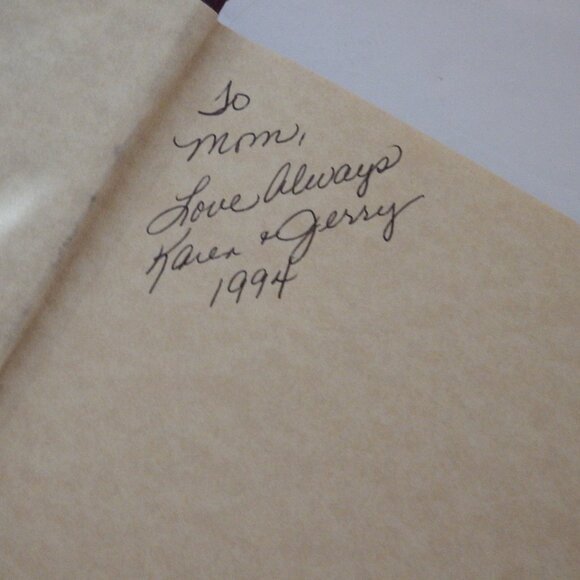 To
Mom,
Love Always
Karen & Jerry
1994